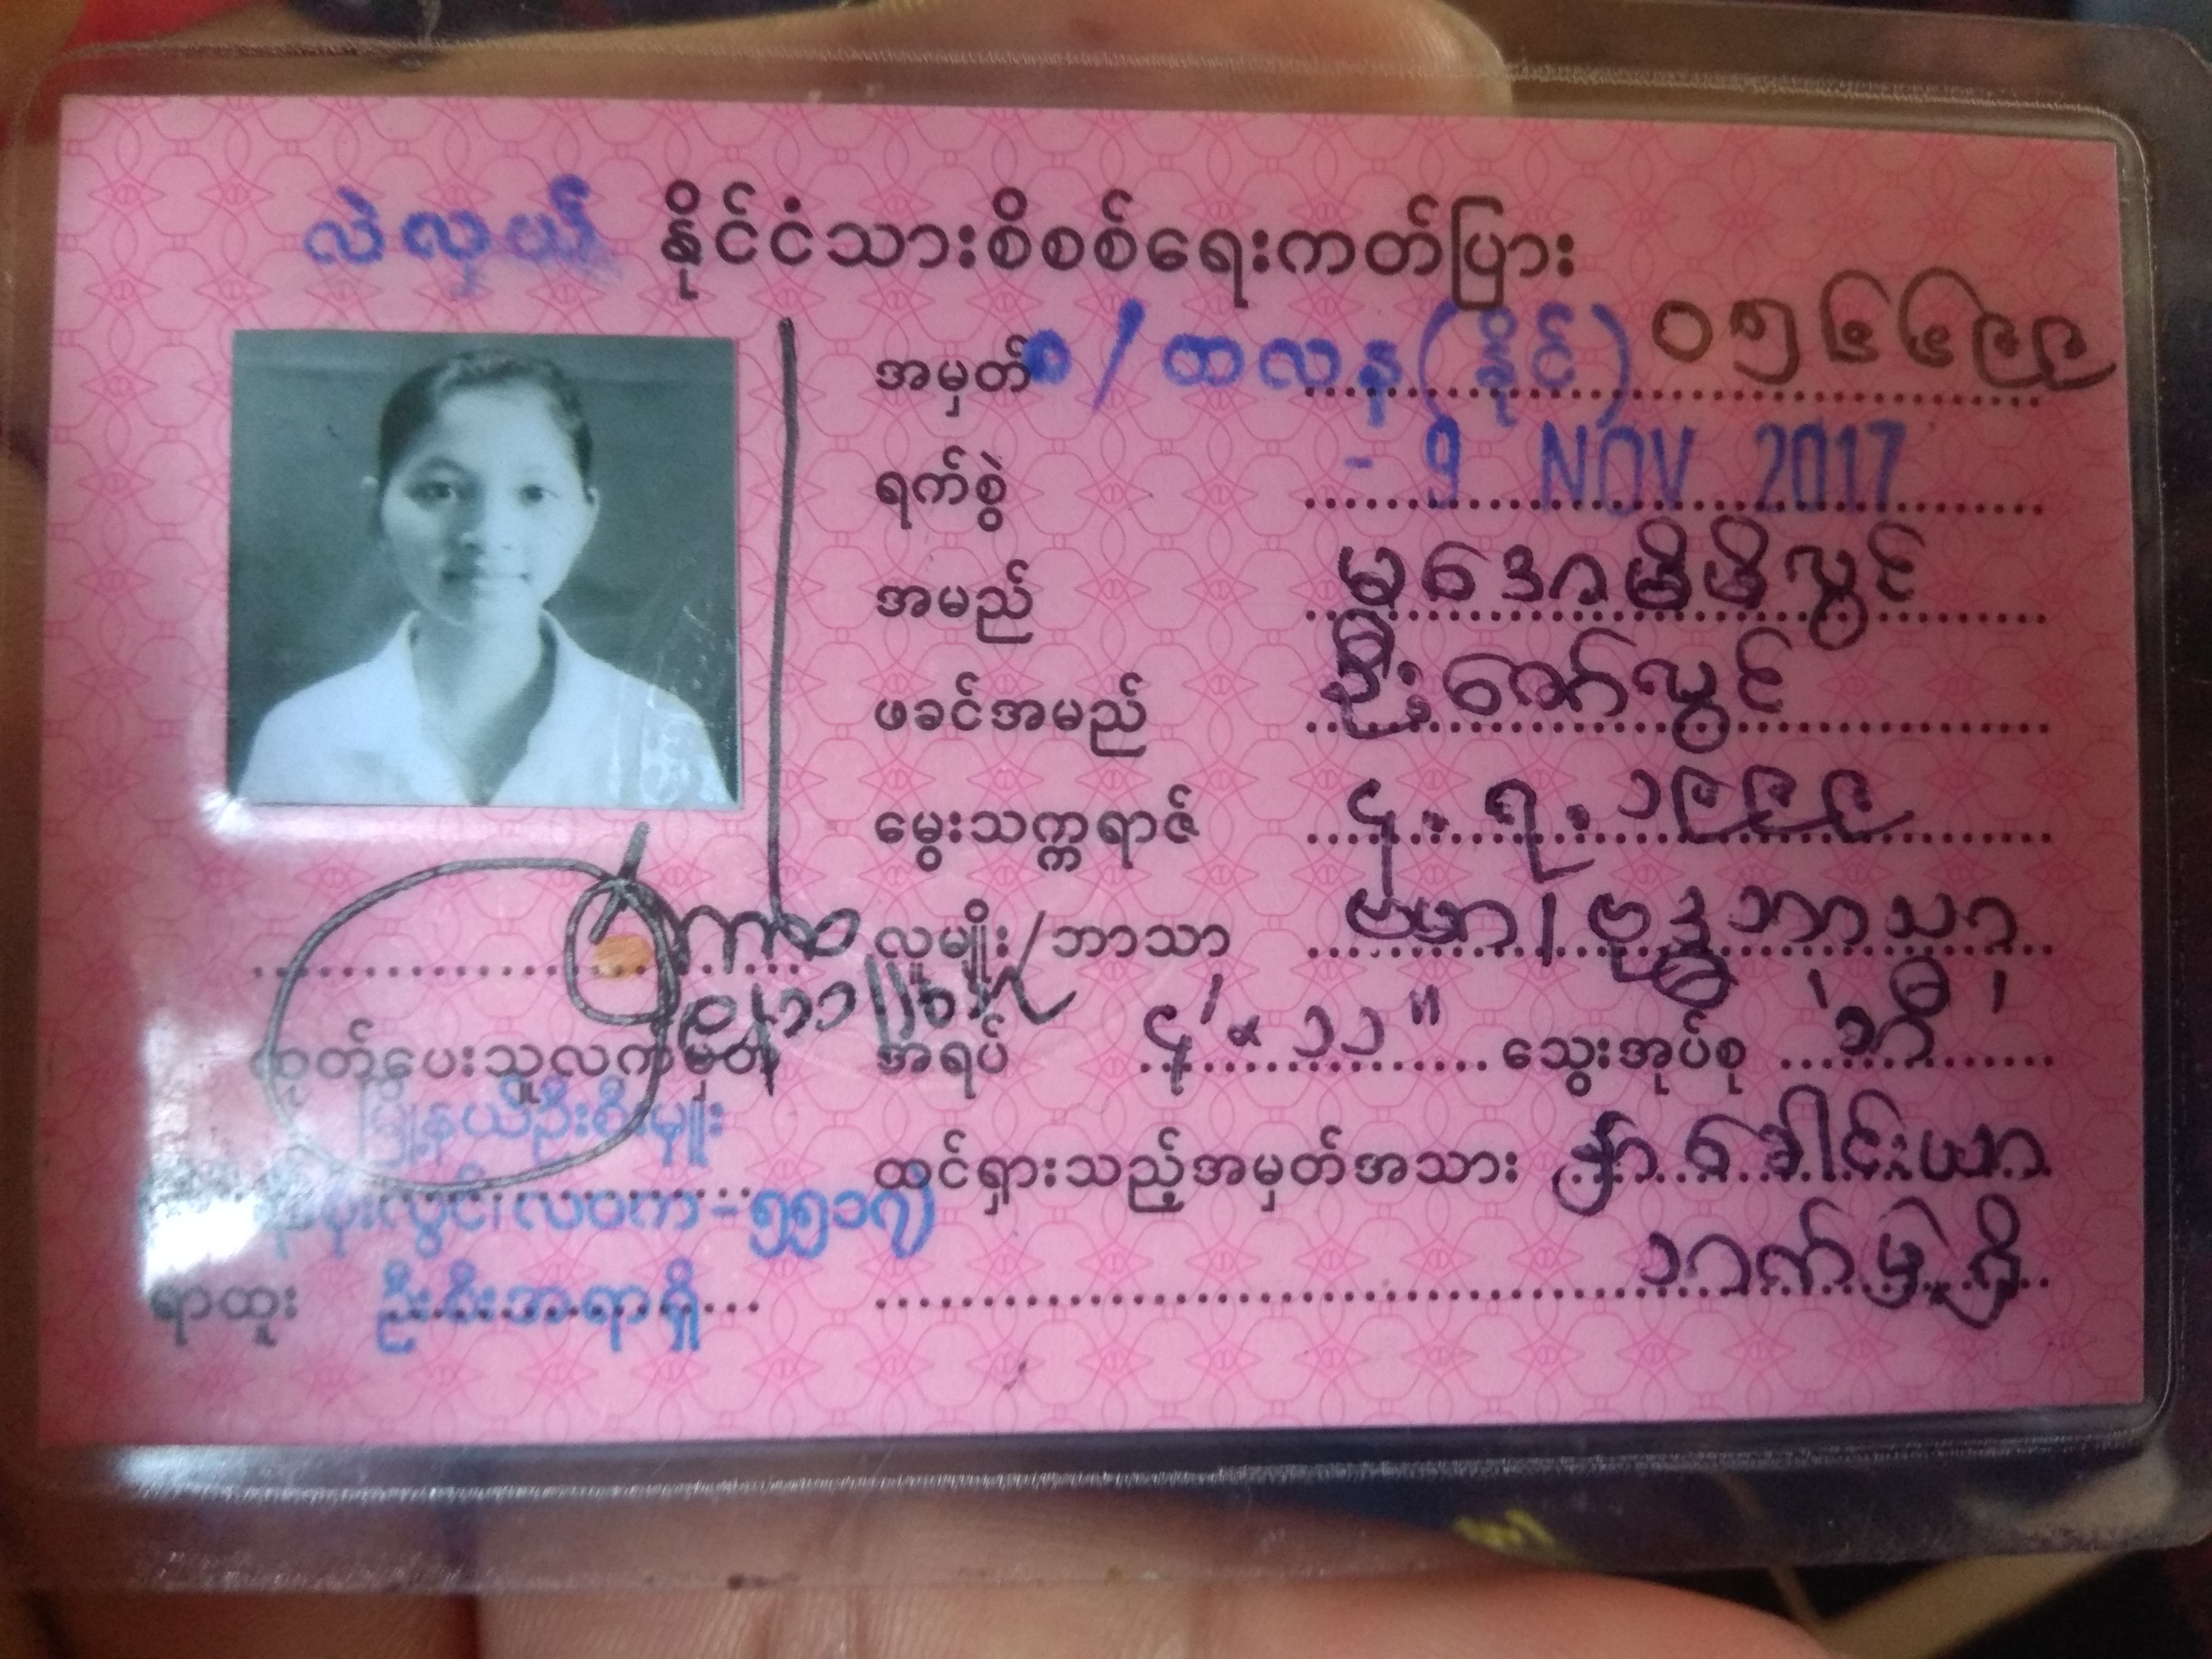 လဲလှယ် နိုင်ငံသားစိစစ်ရေးကတ်ပြား
အမှတ် / ထလန(နိုင်) ၀၅၆၆၉၉
ရက်စွဲ - 9 NOV 2017
အမည် မဒေါမီမီလွင်
ဖခင်အမည် ဦးဇော်လွင်
မွေးသက္ကရာဇ် ၄.၇.၁၉၉၉
လူမျိုး/ဘာသာ ဗမာ/ဗုဒ္ဓဘာသာ
အရပ် ၄' ၁၁" သွေးအုပ်စု 'ဘီ'
ထင်ရှားသည့်အမှတ်အသား
ထုတ်ပေးသူလက်မှတ်
မြို့နယ်ဦးစီးမှူး
လဝက-၅၅၁၇
ရာထူး ဦးစီးအရာရှိ